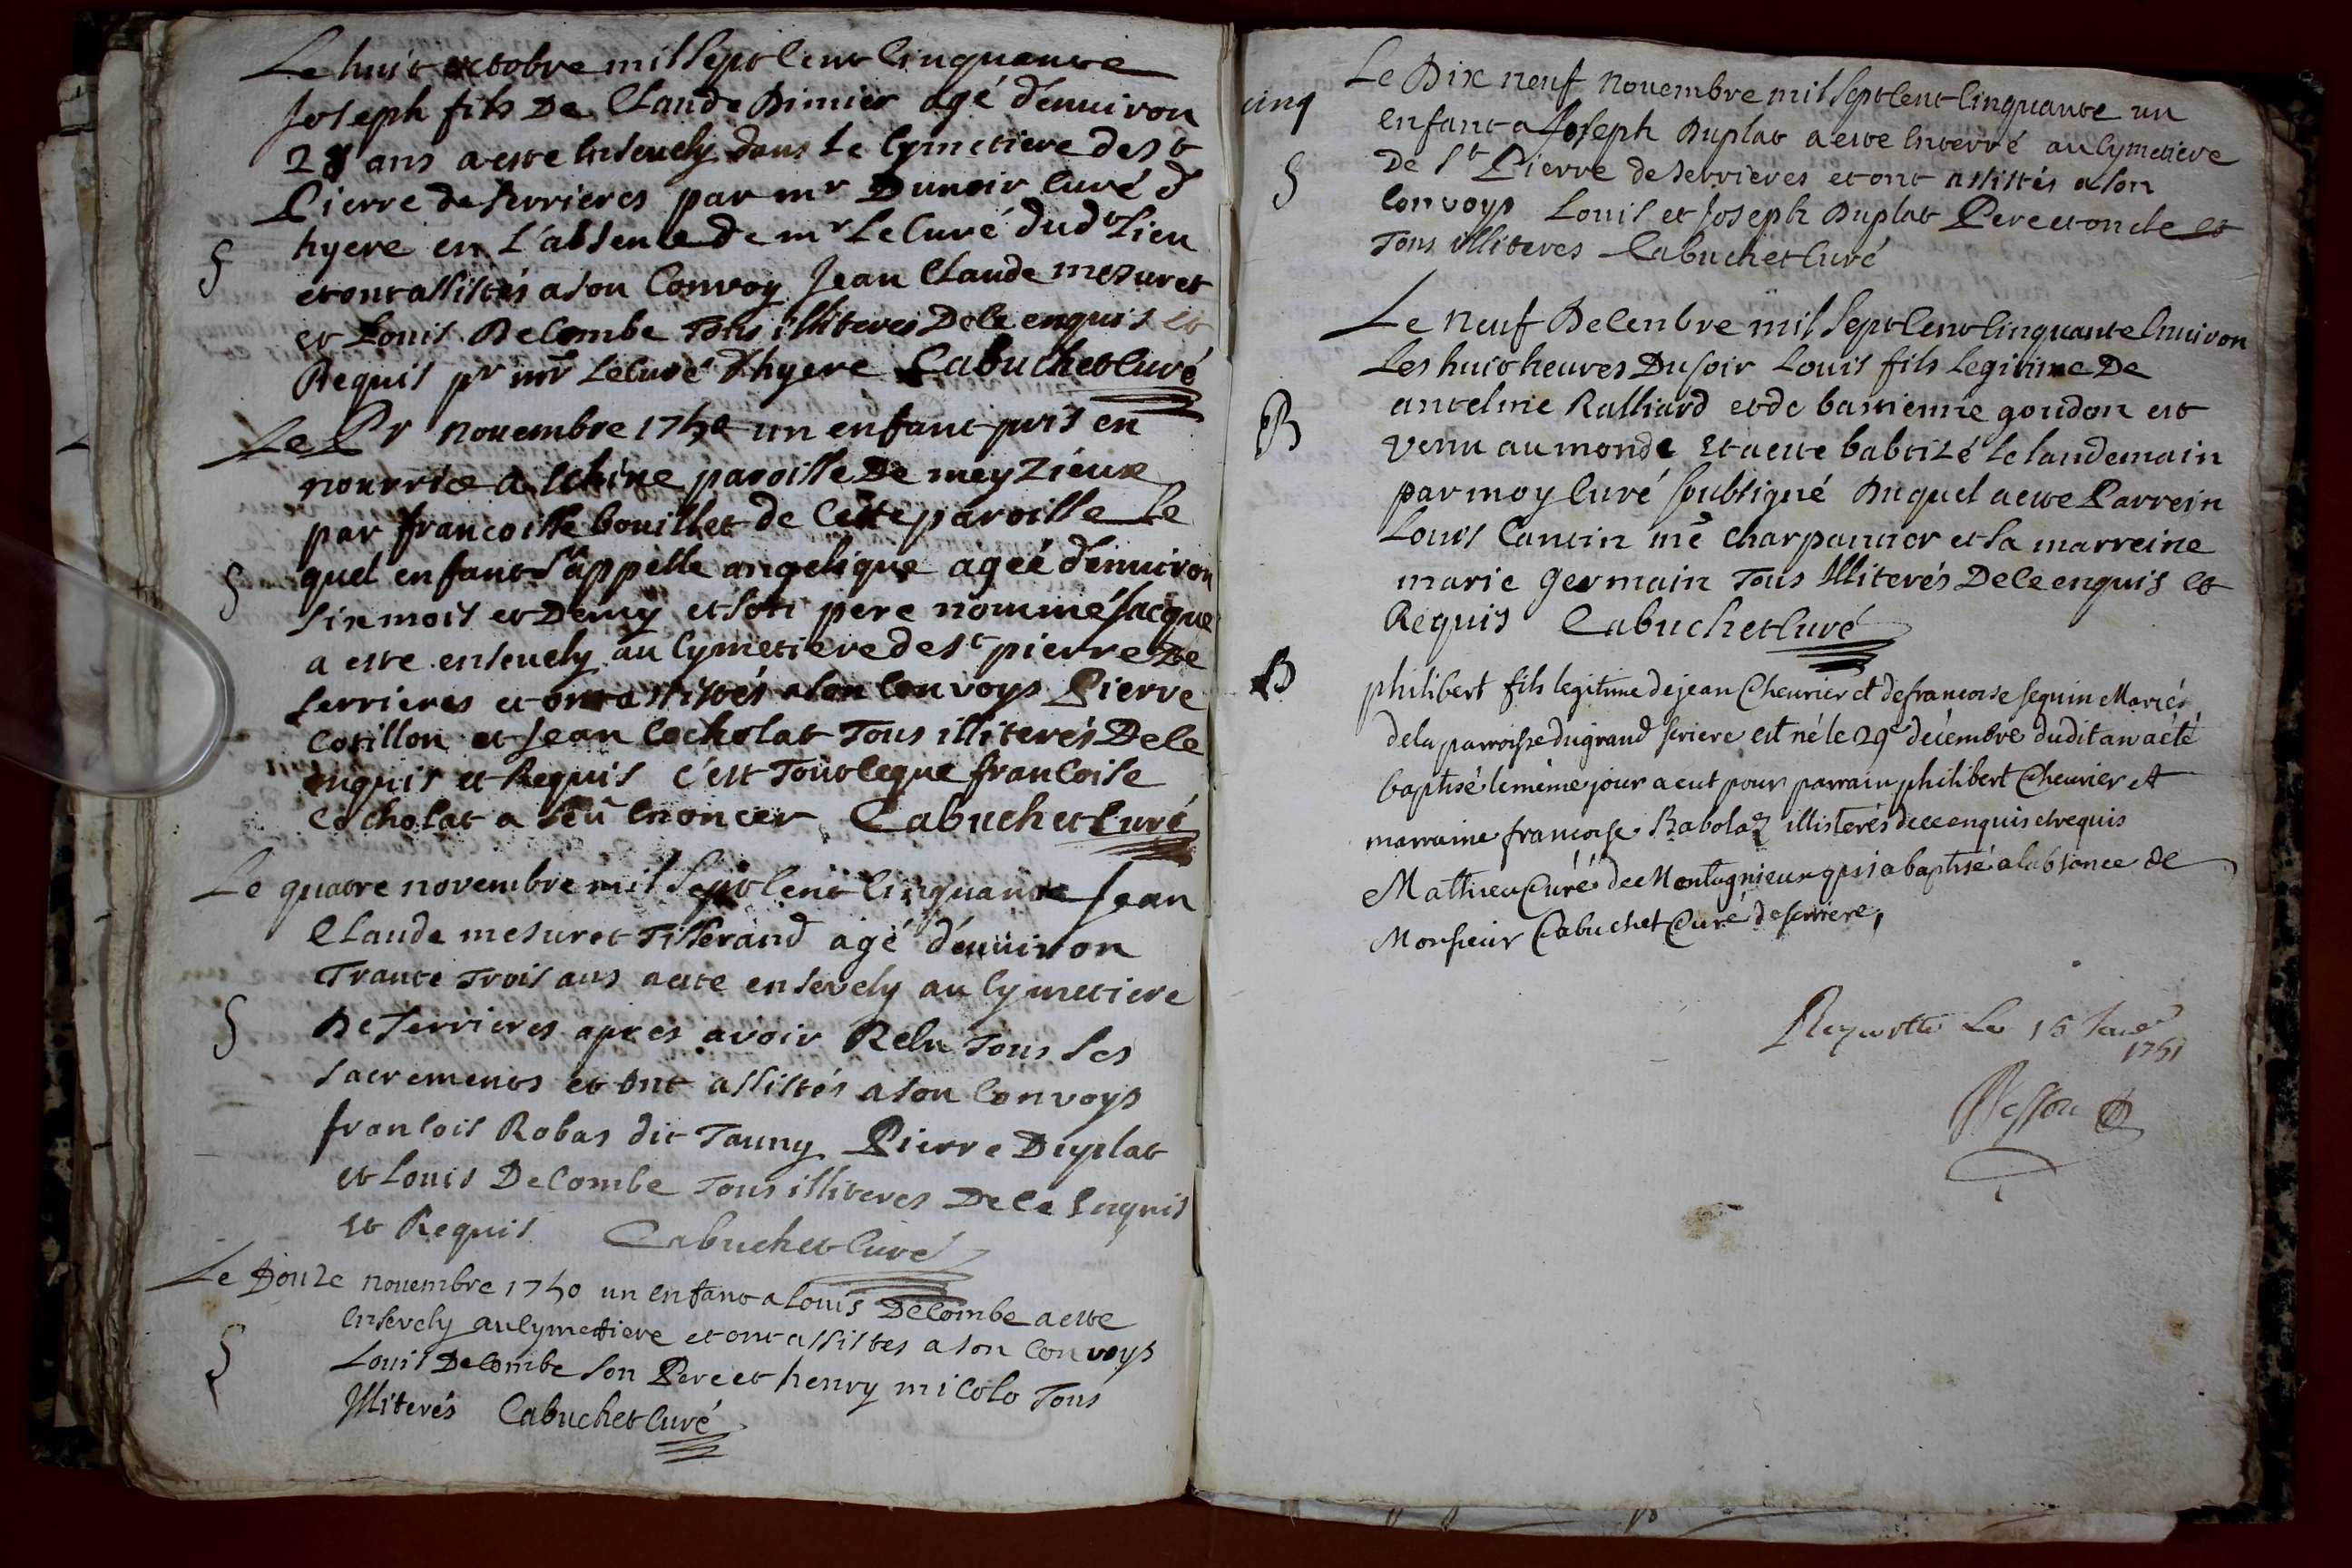 Le huit octobre mil Sept Cent Cinquante
Joseph fils De Claude Dimier agé d'enuiron
28 ans a este Enseuely dans Le Cymetiere de st
Pierre de Serrieres par mr Dunoir Curé d
hyere en L'absence de mr Le Curé dudt Lieu
S
et ont assistés a son Convoy Jean Claude mesuret
et Louis Decombe Tous illiteres De Ce enquis et
Requis pr mr Le Curé d'hyere Cabuchet Curé
Le Pr nouembre 1750 un enfant pris en
nourrice a paroisse De meyzieux
par francoisse bouillet de Cette paroisse Le
S
quel enfant S'appelle angelique ageé d'enuiron
Six mois et Demy et son pere nommé Jacque
a este enseuely au Cymetiere de st pierre De
Serrieres et ont assistés a son Convoys Pierre
Cotillon et Jean Cocholat Tous illiterés De Ce
enquis et Requis c'est Tout ce que francoise
Cocholat a sçû Enoncer Cabuchet Curé
Le quatre novembre mil Sept Cent Cinquante Jean
Claude mesuret Tisserand agé d'enuiron
Trante Trois ans a este ensevely au Cymetiere
S
De Serrieres apres avoir Recu Tous Ses
Sacrements et ont assistés a son Convoys
francois Robas dit Tauny Pierre Duplat
et Louis Decombe Tous illiteres De Ce Enquis
Et Requis Cabuchet Curé
Le Douze nouembre 1750 un enfant a Louis Decombe a este
Ensevely au Cymettiere et ont assistes a son Convoys
S
Louis Decombe Son Pere et henry micolo Tous
Illiterés Cabuchet Curé
cinq
Le Dix neuf nouembre mil Sept Cent Cinquante un
enfant a Joseph Duplat a este Enterré au Cymetiere
S
De St Pierre de Serrieres et ont assistés a son
Convoys Louis et Joseph Duplat Pere et oncle et
Tous illiteres Cabuchet Curé
Le neuf Decenbre mil Sept Cent Cinquante Enuiron
Les huit heures Du soir Louis fils Legitime De
B
antelme Ralliard et de bastienne goudon est
venu au monde Et a este babtizé Le landemain
par moy Curé soubsigné Duquel a este Parrein
Louis Cantin me Charpantier et Sa marreine
marie Germain Tous Illiterés De Ce enquis Et
Requis Cabuchet Curé
B
philibert fils legitime de jean Cheurier et de francoise seguin Mariés
de la parroisse du grand seriere est né le 29e décembre dudit an a été
baptisé le même jour a eut pour parrain philibert Cheurier et
marraine francoise Rabolaz illisterés de ce enquis et requis
Mathieu Curé de Montagnieux qui a baptisé a labsance de
Monsieur Cabuchet Curé de serriere,
Le 15 1751